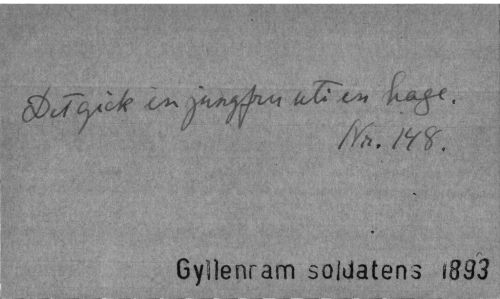 Det gick en jungfru uti en hage.
Nr. 148.
Gyllenram soldatens 1893